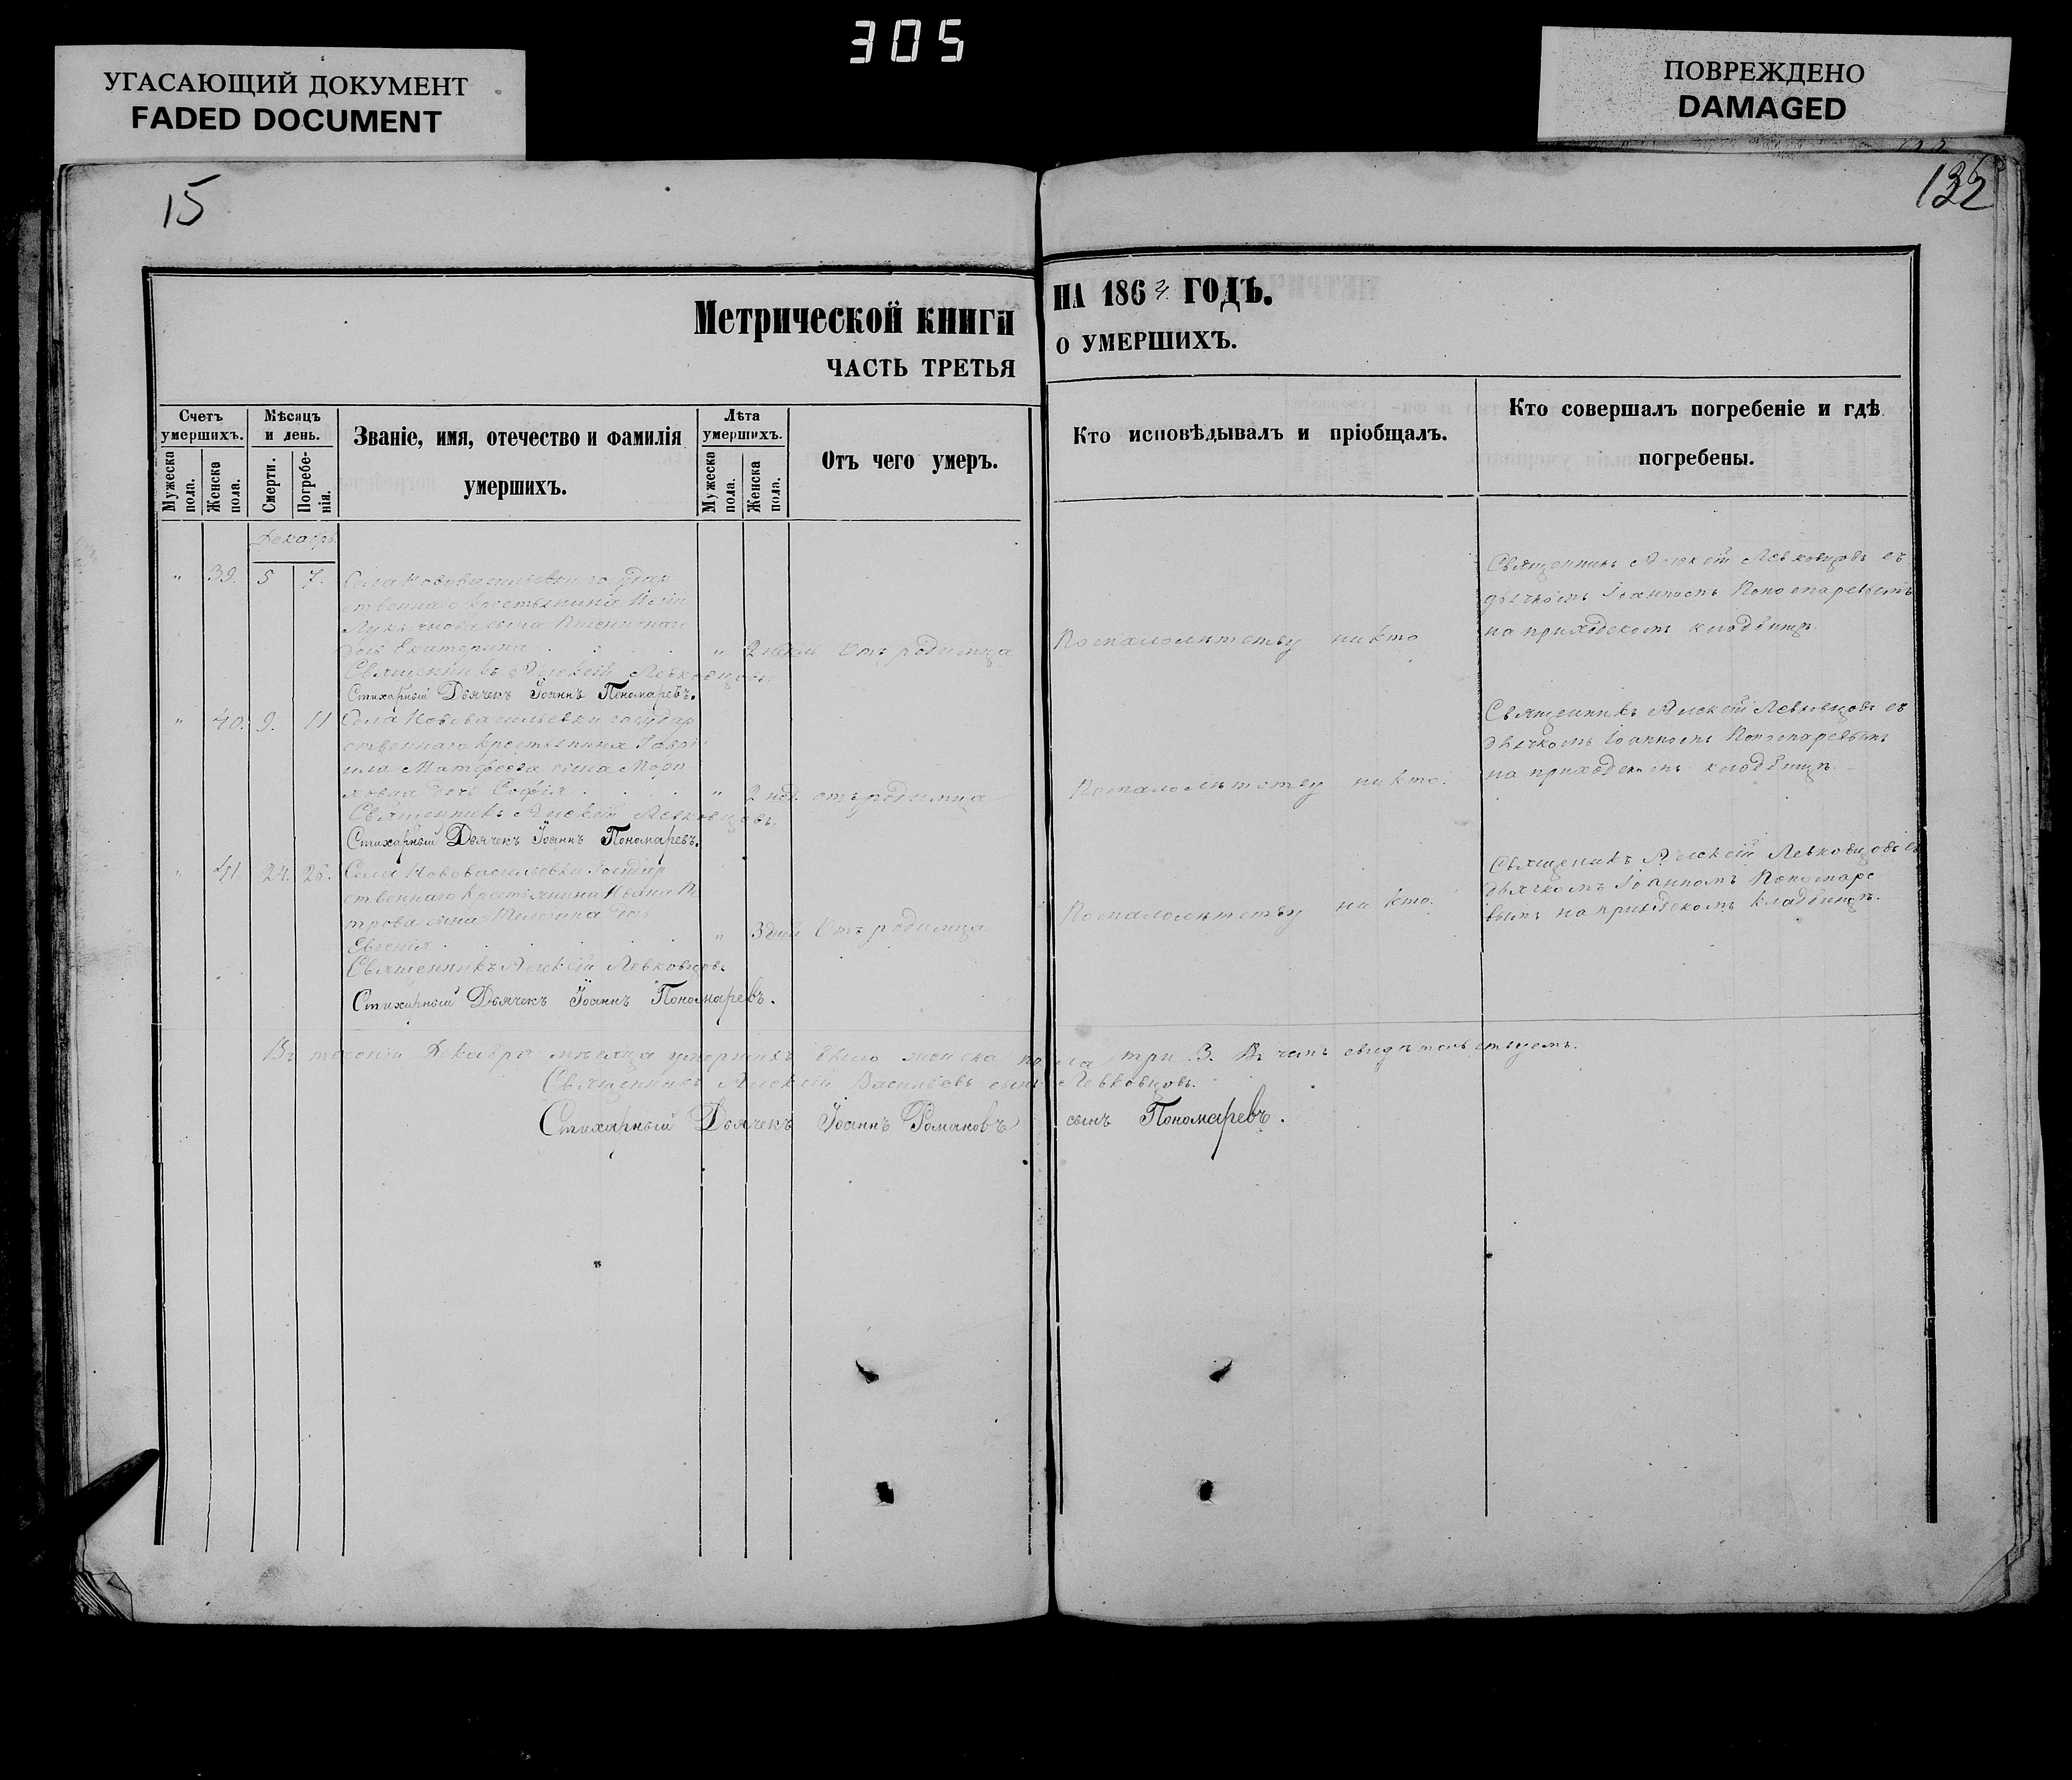 305
УГАСАЮЩИЙ ДОКУМЕНТ
FADED DOCUMENT
ПОВРЕЖДЕНО
DAMAGED
15
Метрической книги
на 1864 годъ.
ЧАСТЬ ТРЕТЬЯ
о УМЕРШИХЪ.
Счетъ умершихъ.
Мужеска пола.
Женска пола.
Мѣсяцъ и день.
Смерти.
Погребе-нія.
Званіе, имя, отечество и фамилія
умершихъ.
Лѣта умершихъ.
Мужеска пола.
Женска пола.
Отъ чего умеръ.
Кто исповѣдывалъ и пріобщалъ.
Кто совершалъ погребеніе и гдѣ
погребены.
Декабрь
" 39. 5 7. Села Нововасильевки государ
ственнаго крестьянина
Лукьянова сына
дочь Екатерина " 2 недѣль Отъ родимца
По малолѣтству никто
Священникъ Алексій Левковцовъ съ
дьячкомъ Іоанномъ Пономаревымъ
на приходскомъ кладбищѣ.
Священникъ Алексій Левковцовъ.
Стихарный Дьячекъ Іоаннъ Пономаревъ.
" 40. 9. 11 Села Нововасильевки государ
ственнаго крестьянина Гаврі
ила Матфеева сына
дочь Софія " 2 нед. отъ родимца
По малолѣтству никто.
Священникъ Алексій Левковцовъ съ
дьячкомъ Іоанномъ Пономаревымъ
на приходскомъ кладбищѣ.
Священникъ Алексій Левковцовъ.
Стихарный Дьячекъ Іоаннъ Пономаревъ.
" 41. 24. 26. Села Нововасильевки Государ
ственнаго Крестьянина Ивана Пе
трова сына дочь
Евгенія " 3 дній Отъ родимца
По малолѣтству никто.
Священникъ Алексій Левковцовъ съ
дьячкомъ Іоанномъ Пономаре
вымъ на приходскомъ кладбищѣ.
Священникъ Алексій Левковцовъ.
Стихарный Дьячекъ Іоаннъ Пономаревъ.
Въ теченіи Декабря мѣсяца умершихъ было женска пола три 3. Въ чемъ свидѣтельствуемъ.
Священникъ Алексій Васильевъ сынъ Левковцовъ.
Стихарный Дьячекъ Іоаннъ Романовъ сынъ Пономаревъ.